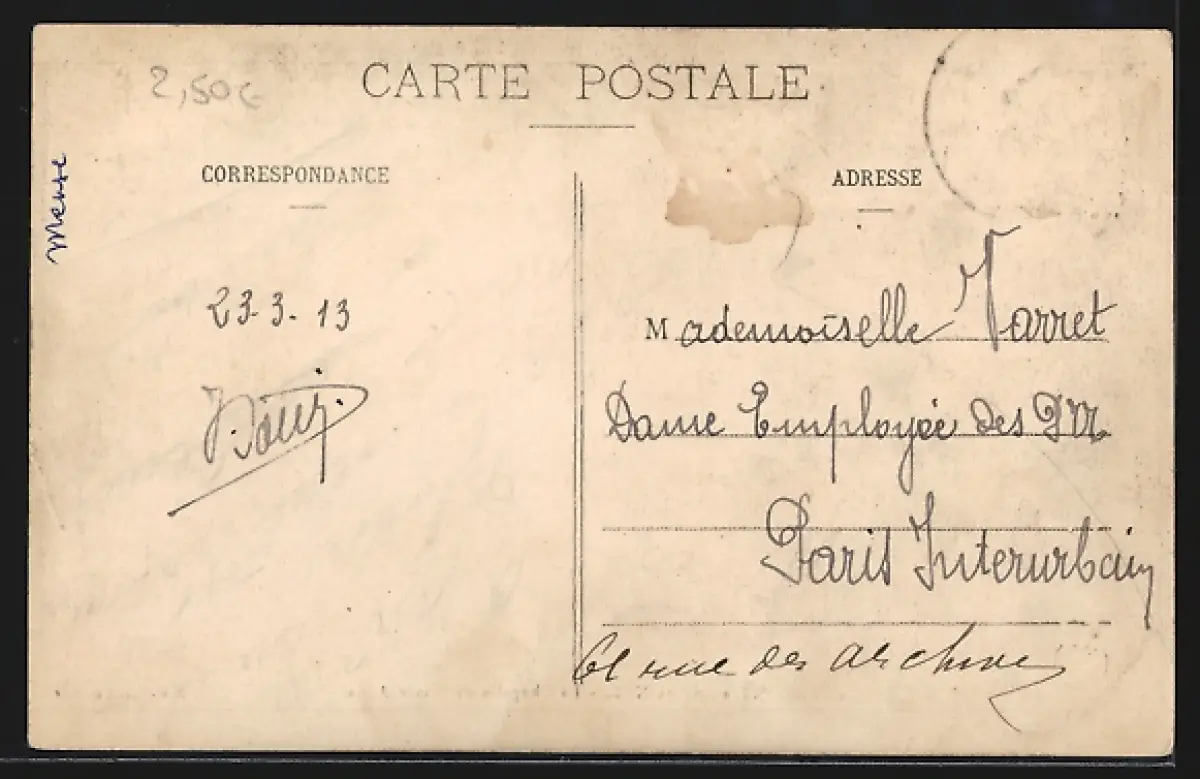 CARTE POSTALE
2,50€
Meuse
CORRESPONDANCE
23.3.13
ADRESSE
Mademoiselle Varret
Dame Employée des
Paris Interurbain
rue des archives